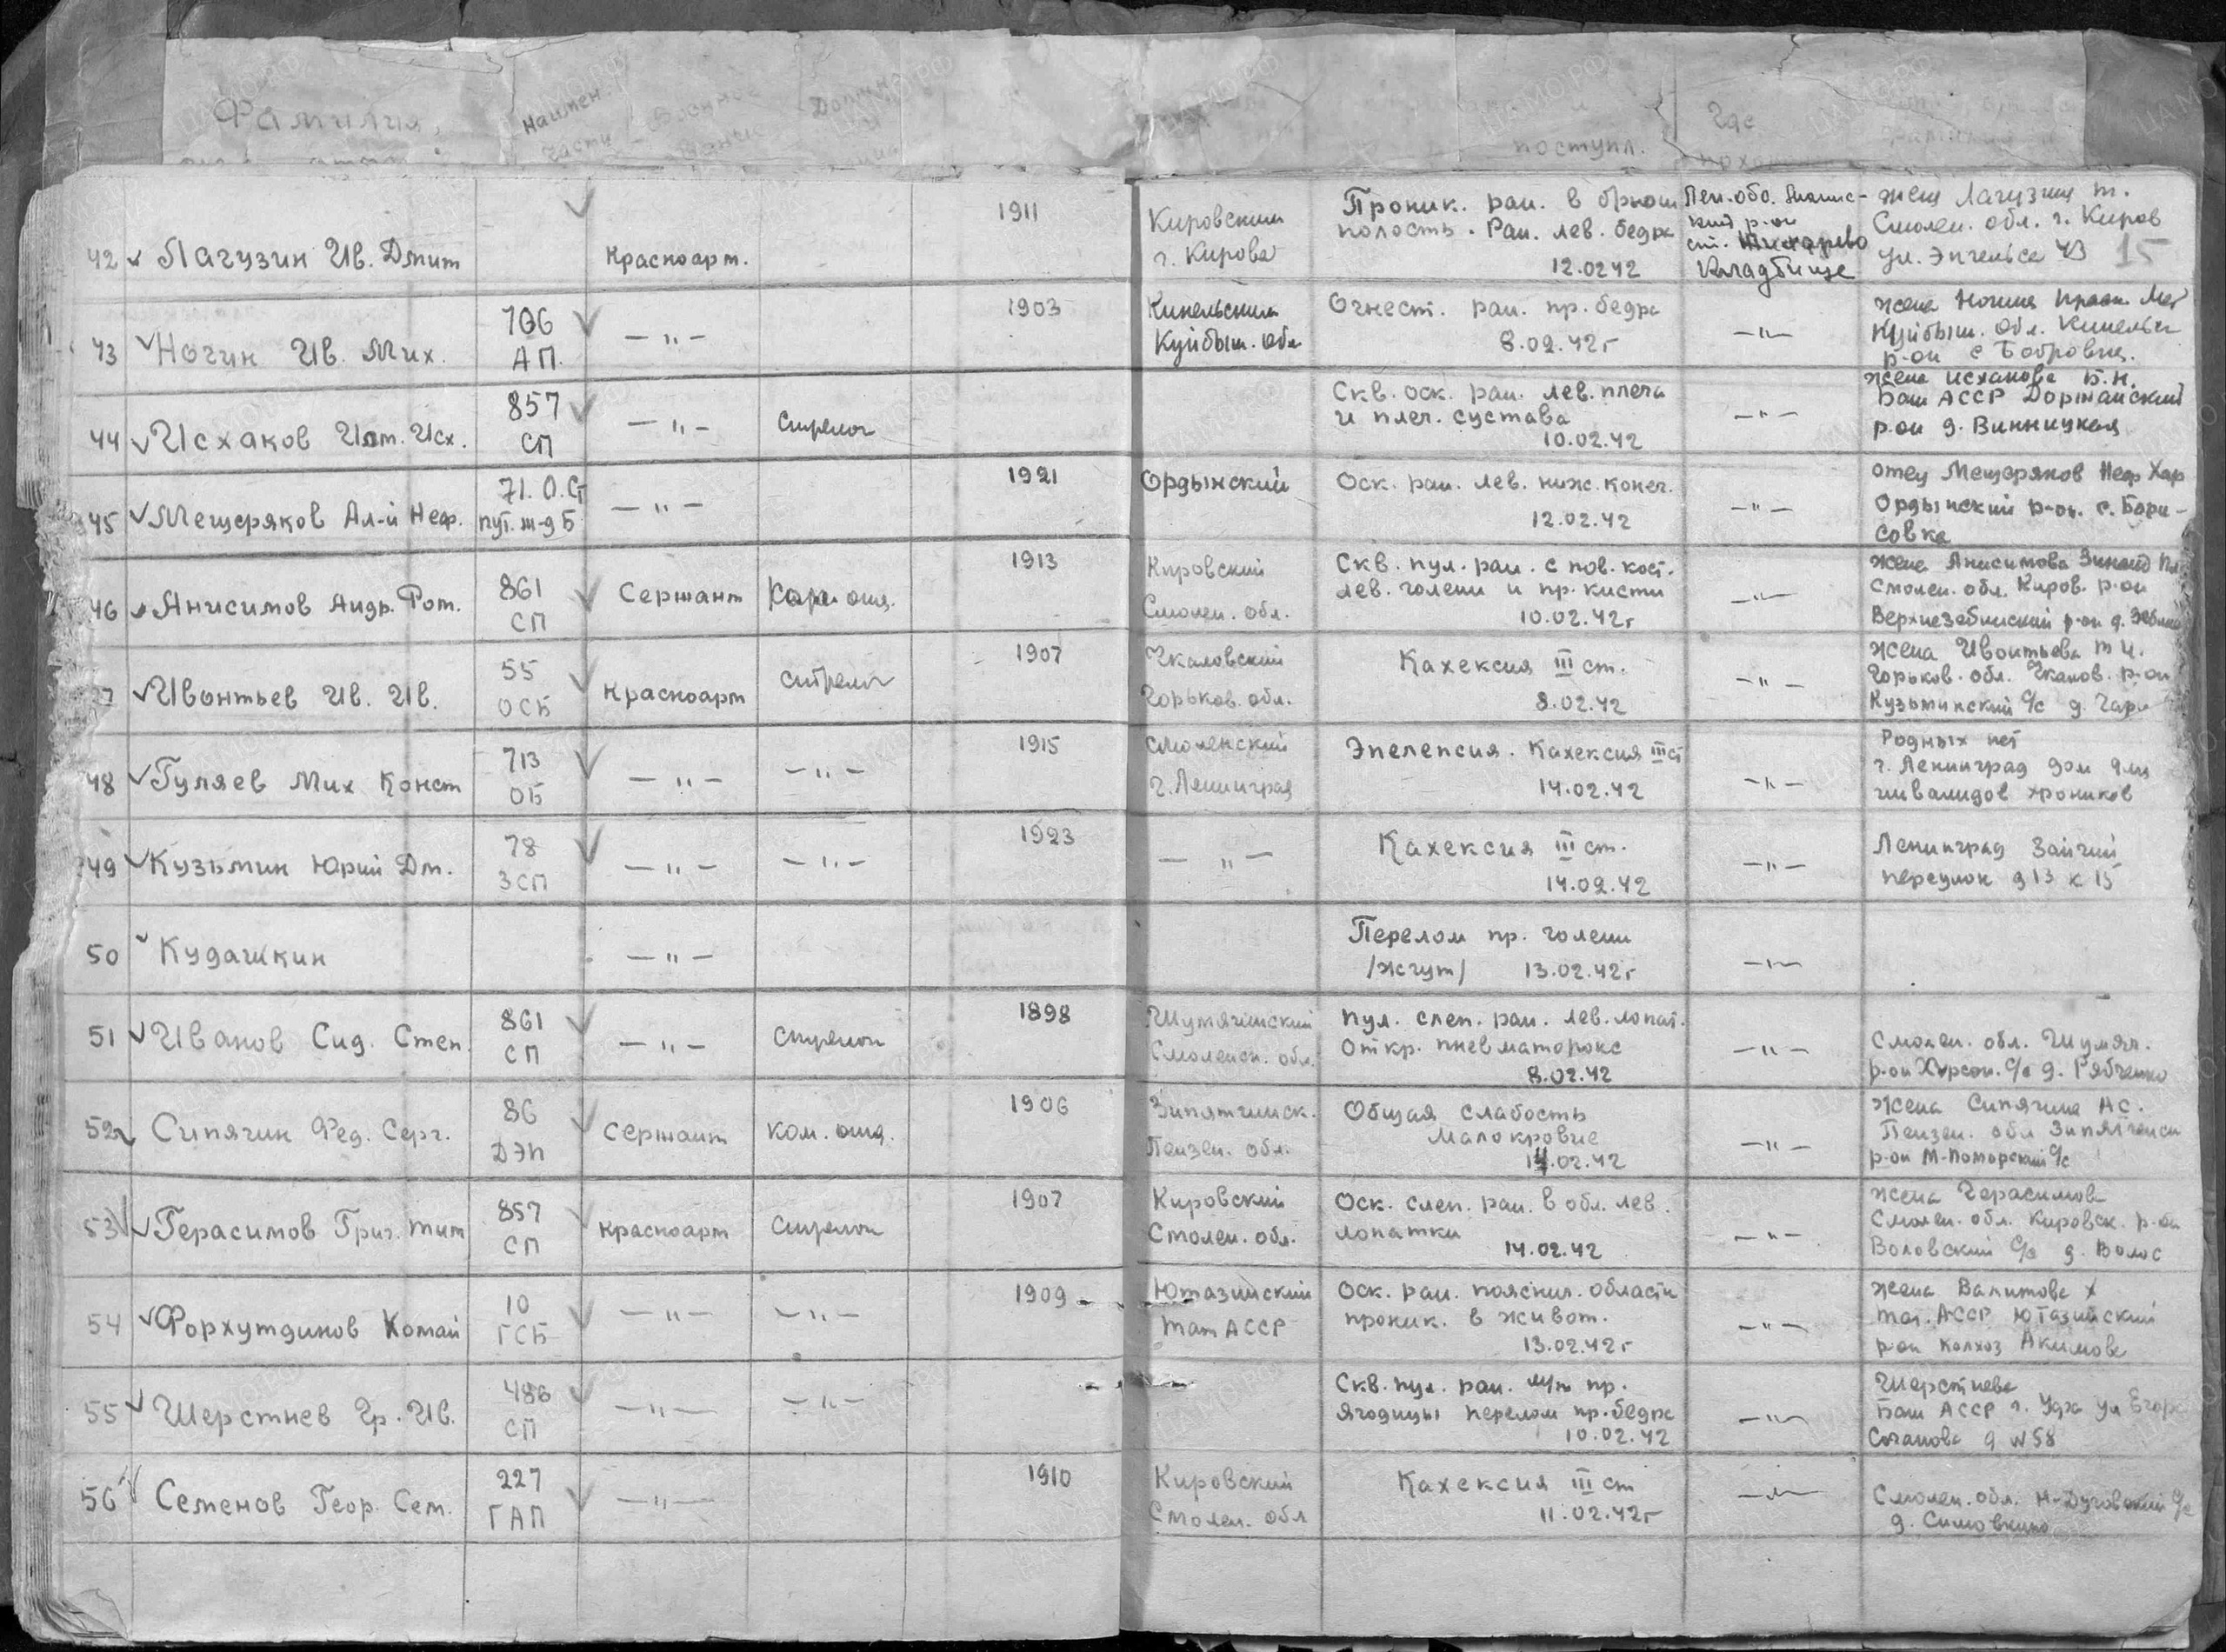 Фамилия,
Наимен.
части
Военное
поступл.
Где
42 Лагузин Ив. Дмит
Красноарм.
1911
Кировским
г. Кирова
Проник. ран. в брюш
полость. Ран. лев. бедра
12.02 42
Лен. обл. Мгинс-
кий р-он
Кладбище
жена Лагузина т.
Смолен. обл. г. Киров
ул. Энгельса 43
15
43 Ночин Ив. Мих.
706
АП.
— " —
1903
Кинельским
Куйбыш. обл
Огнест. ран. пр. бедра
8.02.42г
— " —
жена Ночина
Куйбыш. обл. Кинельск
р-он с Бобровка.
44 Исхаков Исх.
857
СП
— " —
Стрелок
Скв. оск. ран. лев. плеча
и плеч. сустава
10.02.42
— " —
жена Исхакова Б.Н.
Баш АССР
р-он д. Винницкая
45 Мещеряков Ал-й Неф.
71. О.
— " —
1921
Ордынский
Оск. ран. лев. ниж. конеч.
12.02.42
— " —
отец Мещеряков Неф Хар
Ордынский р-он. с. Бори-
совка
46 Анисимов Андр. Ром.
861
СП
Сержант
1913
Кировский
Смолен. обл.
Скв. пул. ран. с пов. кост.
лев. голени и пр. кисти
10.02.42г
— " —
жена Анисимова Зинаид
Смолен. обл. Киров. р-он
47 Ивонтьев Ив. Ив.
55
ОСБ
Красноарм
стрелок
1907
Чкаловский
Горьков. обл.
Кахексия III ст.
8.02.42
— " —
жена Ивонтьева
Горьков. обл. Чкалов. р-он
Кузьминский с/с д.
48 Гуляев Мих Конст
713
ОБ
— " —
— " —
1915
Смоленский
г. Ленинград
Эпелепсия. Кахексия III ст
14.02.42
— " —
Родных нет
г. Ленинград дом для
инвалидов хроников
49 Кузьмин Юрий Дм.
78
ЗСП
— " —
— " —
1923
— " —
Кахексия III ст.
14.02.42
— " —
Ленинград Заячий
переулок д 13 к 15
50 Кудашкин
— " —
Перелом пр. голени
/жгут/ 13.02.42г
— " —
51 Иванов Сид. Степ.
861
СП
— " —
Стрелок
1898
Шумячинский
Смоленск. обл.
Пул. слеп. ран. лев. лопат.
Откр. пневматоракс
8.02.42
— " —
Смолен. обл. Шумяч.
р-он Херсон. с/с д. Рябченко
52 Сипягин Фед. Серг.
86
ДЭП
Сержант
Ком. отд.
1906
Пензен. обл.
Общая слабость
Малокровие
14.02.42
— " —
жена Сипягина А С.
Пензен. обл
р-он М-Поморский с/с
53 Герасимов Григ. Тит
857
СП
Красноарм
Стрелок
1907
Кировский
Смолен. обл.
Оск. слеп. ран. в обл. лев.
лопатки
14.02.42
— " —
жена Герасимова
Смолен. обл. Кировск. р-он
Воловский с/с д. Волос
54 Форхутдинов Комай
10
ГСБ
— " —
— " —
1909
Ютазинский
Тат АССР
Оск. ран. пояснич. области
проник. в живот.
13.02.42г
— " —
жена Валитова Х
Тат. АССР Ютазийский
р-он колхоз Акимова
55 Шерстнев Гр. Ив.
486
СП
— " —
— " —
Скв. пул. ран. м/т пр.
ягодицы перелом пр. бедра
10.02.42
— " —
Шерстнева
Баш АССР г. Уфа ул
д N 58
56 Семенов Геор. Сем.
227
ГАП
— " —
1910
Кировский
Смолен. обл
Кахексия III ст
11.02.42г
— " —
Смолен. обл.
д. Симовкино